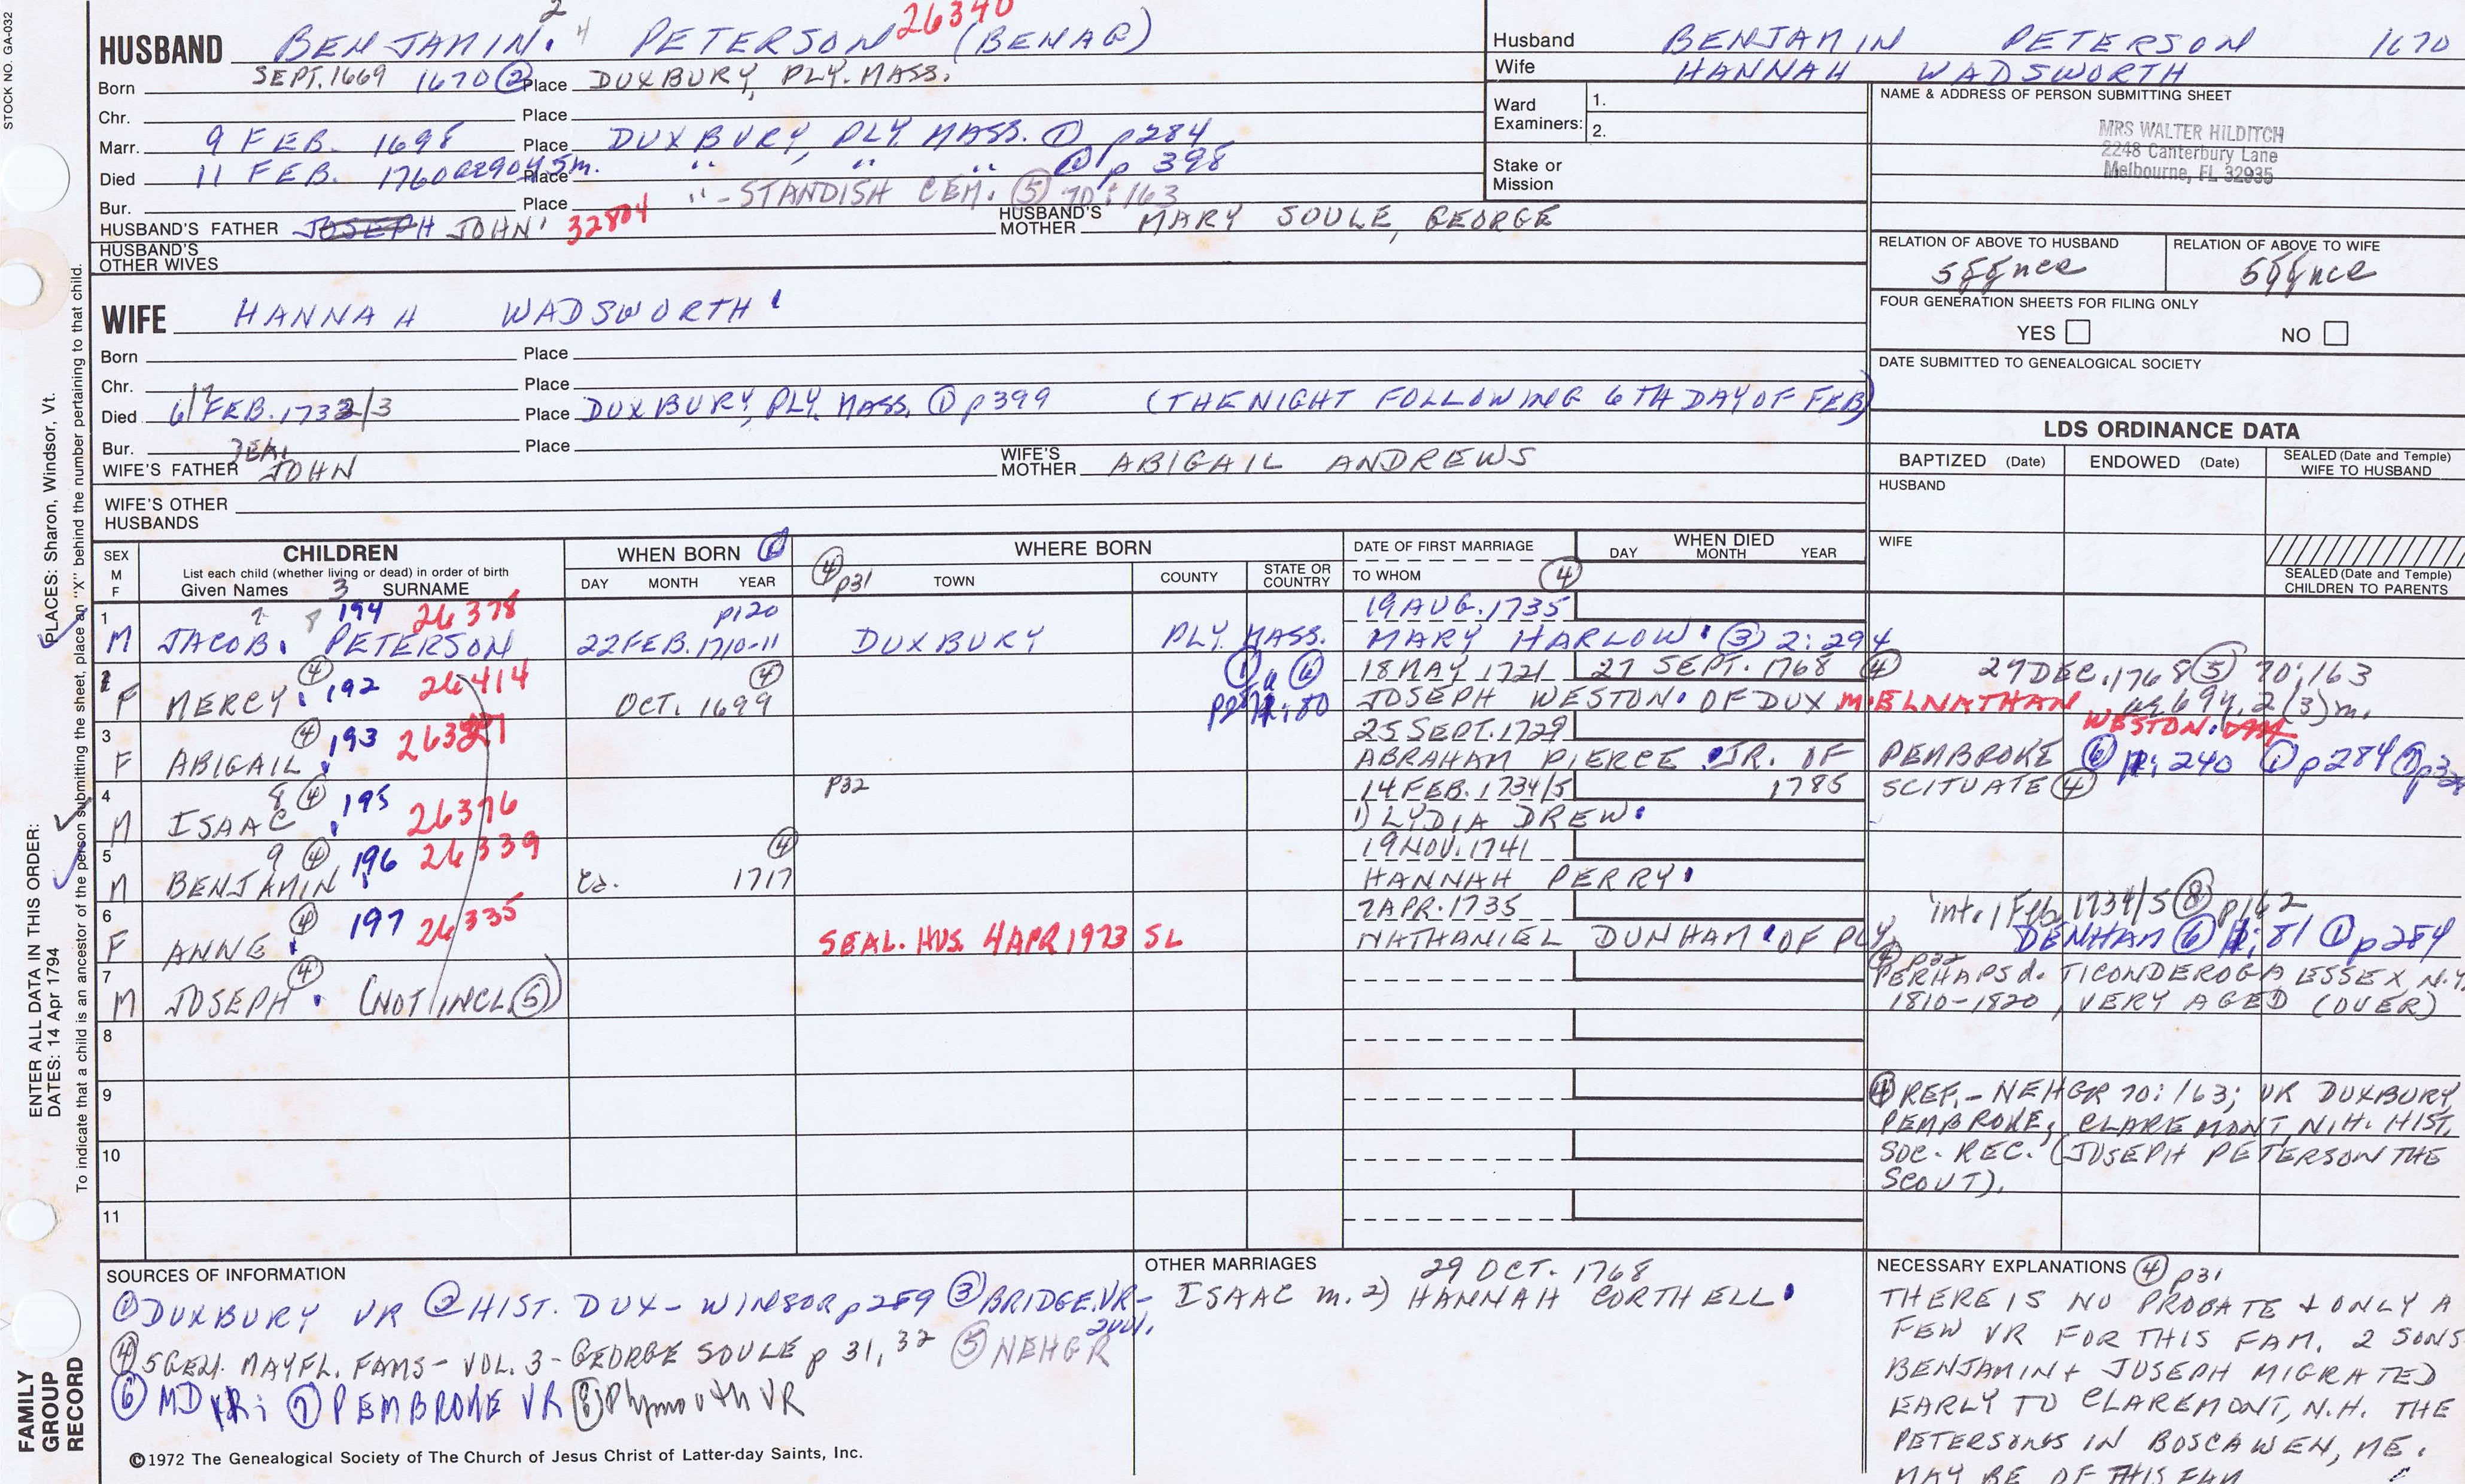 STOCK NO. GA-032
HUSBAND BENJAMIN. 2 4 PETERSON 26340 (BENAG)
Born SEPT. 1669 1670 ② Place DUXBURY, PLY. MASS.
Chr. Place
Marr. 9 FEB. 1698 Place DUXBURY, PLY. MASS. ① p284
Died 11 FEB. 1760 Place " " " ① p 398
Bur. Place " - STANDISH CEM. ⑤ 70:163
HUSBAND'S FATHER JOSEPH JOHN 32804 HUSBAND'S MOTHER MARY SOULE, GEORGE
HUSBAND'S OTHER WIVES
WIFE HANNAH WADSWORTH
Born Place
Chr. Place
Died 6/7 FEB. 1732/3 Place DUXBURY, PLY. MASS. ① p399 (THE NIGHT FOLLOWING 6TH DAY OF FEB)
Bur. Place
WIFE'S FATHER JOHN WIFE'S MOTHER ABIGAIL ANDREWS
WIFE'S OTHER HUSBANDS
Husband BENJAMIN PETERSON 1670
Wife HANNAH WADSWORTH
Ward Examiners: 1.
2.
Stake or Mission
NAME & ADDRESS OF PERSON SUBMITTING SHEET
MRS WALTER HILDITCH
2248 Canterbury Lane
Melbourne, FL 32935
RELATION OF ABOVE TO HUSBAND RELATION OF ABOVE TO WIFE
FOUR GENERATION SHEETS FOR FILING ONLY
YES NO
DATE SUBMITTED TO GENEALOGICAL SOCIETY
LDS ORDINANCE DATA
BAPTIZED (Date) ENDOWED (Date) SEALED (Date and Temple) WIFE TO HUSBAND
HUSBAND
WIFE
SEALED (Date and Temple) CHILDREN TO PARENTS
SEX M F CHILDREN WHEN BORN WHERE BORN DATE OF FIRST MARRIAGE WHEN DIED
List each child (whether living or dead) in order of birth
Given Names 3 SURNAME DAY MONTH YEAR ④ p31 TOWN COUNTY STATE OR COUNTRY TO WHOM ④ DAY MONTH YEAR
1 194 26378 p120 19 AUG. 1735
M JACOB. PETERSON 22 FEB. 1710-11 DUXBURY PLY. MASS. MARY HARLOW. ③ 2:294
2 ④ 192 26414 ④ ① ⑥ 18 MAY 1721 27 SEPT. 1768 ④ 27 DEC. 1768 ⑤ 70:163
F MERCY. OCT. 1699 JOSEPH WESTON. OF DUX M. ELNATHAN WESTON.
3 ④ 193 25 SEPT. 1729
F ABIGAIL ABRAHAM PIERCE JR. OF PEMBROKE ⑥ 240 ① p284
4 8 ④ 195 26376 p32 14 FEB. 1734/5 1785 SCITUATE ④
M ISAAC 1) LYDIA DREW.
5 9 ④ 196 26339 ④ 19 NOV. 1741
M BENJAMIN ca. 1717 HANNAH PERRY.
6 ④ 197 26335 7 APR. 1735 int. 1 Feb. 1734/5 ⑧ p162
F ANNE SEAL. HUS. 4 APR 1973 SL NATHANIEL DUNHAM. OF PLY. DENHAM ⑥ 81 ① p284
7 ④ ④ p32 PERHAPS d. TICONDEROGA, ESSEX, N.Y.
M JOSEPH. (NOT INCL. ⑤) 1810-1820, VERY AGED (OVER)
8
9 ④ REF. - NEHGR 70:163; VR DUXBURY,
PEMBROKE; CLAREMONT, N.H. HIST.
10 SOC. REC. (JOSEPH PETERSON THE
SCOUT).
11
SOURCES OF INFORMATION
① DUXBURY VR ② HIST. DUX - WINSOR p289 ③ BRIDGE. VR - 2 vol.
④ 5 GEN. MAYFL. FAMS - VOL. 3 - GEORGE SOULE p 31, 32 ⑤ NEHGR
⑥ MD ⑦ PEMBROKE VR ⑧ Plymouth VR
©1972 The Genealogical Society of The Church of Jesus Christ of Latter-day Saints, Inc.
OTHER MARRIAGES 29 OCT. 1768
ISAAC m. 2) HANNAH CORTHELL.
NECESSARY EXPLANATIONS ④ p31
THERE IS NO PROBATE + ONLY A
FEW VR FOR THIS FAM. 2 SONS
BENJAMIN + JOSEPH MIGRATED
EARLY TO CLAREMONT, N.H. THE
PETERSONS IN BOSCAWEN, ME.
MAY BE OF THIS FAM
FAMILY GROUP RECORD
ENTER ALL DATA IN THIS ORDER:
PLACES: Sharon, Windsor, Vt.
DATES: 14 Apr 1794
To indicate that a child is an ancestor of the person submitting the sheet, place an "X" behind the number pertaining to that child.